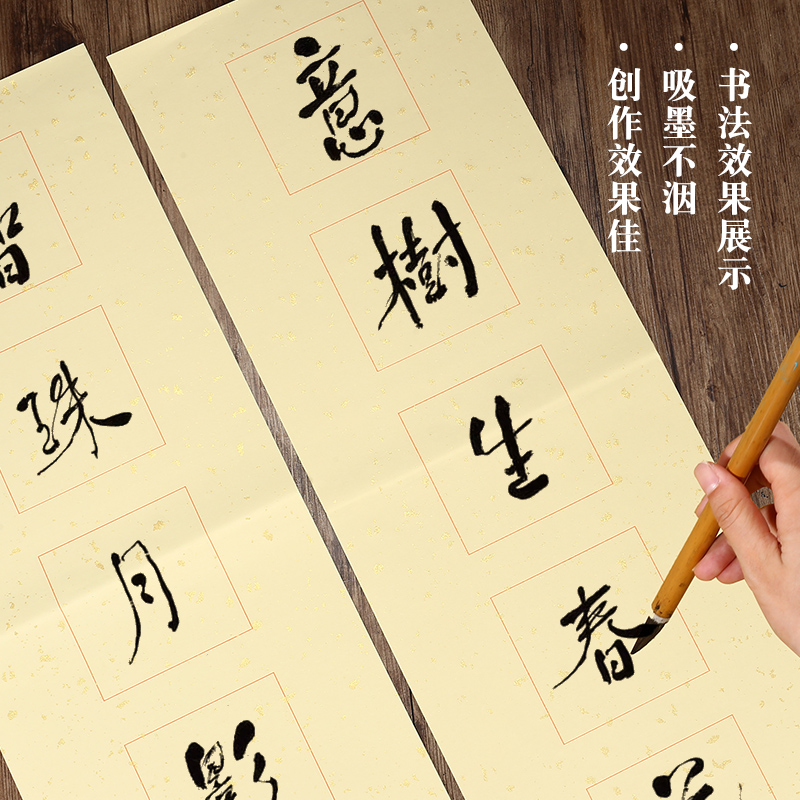 ·书法效果展示
·吸墨不洇
·创作效果佳
意樹生春
珠月影